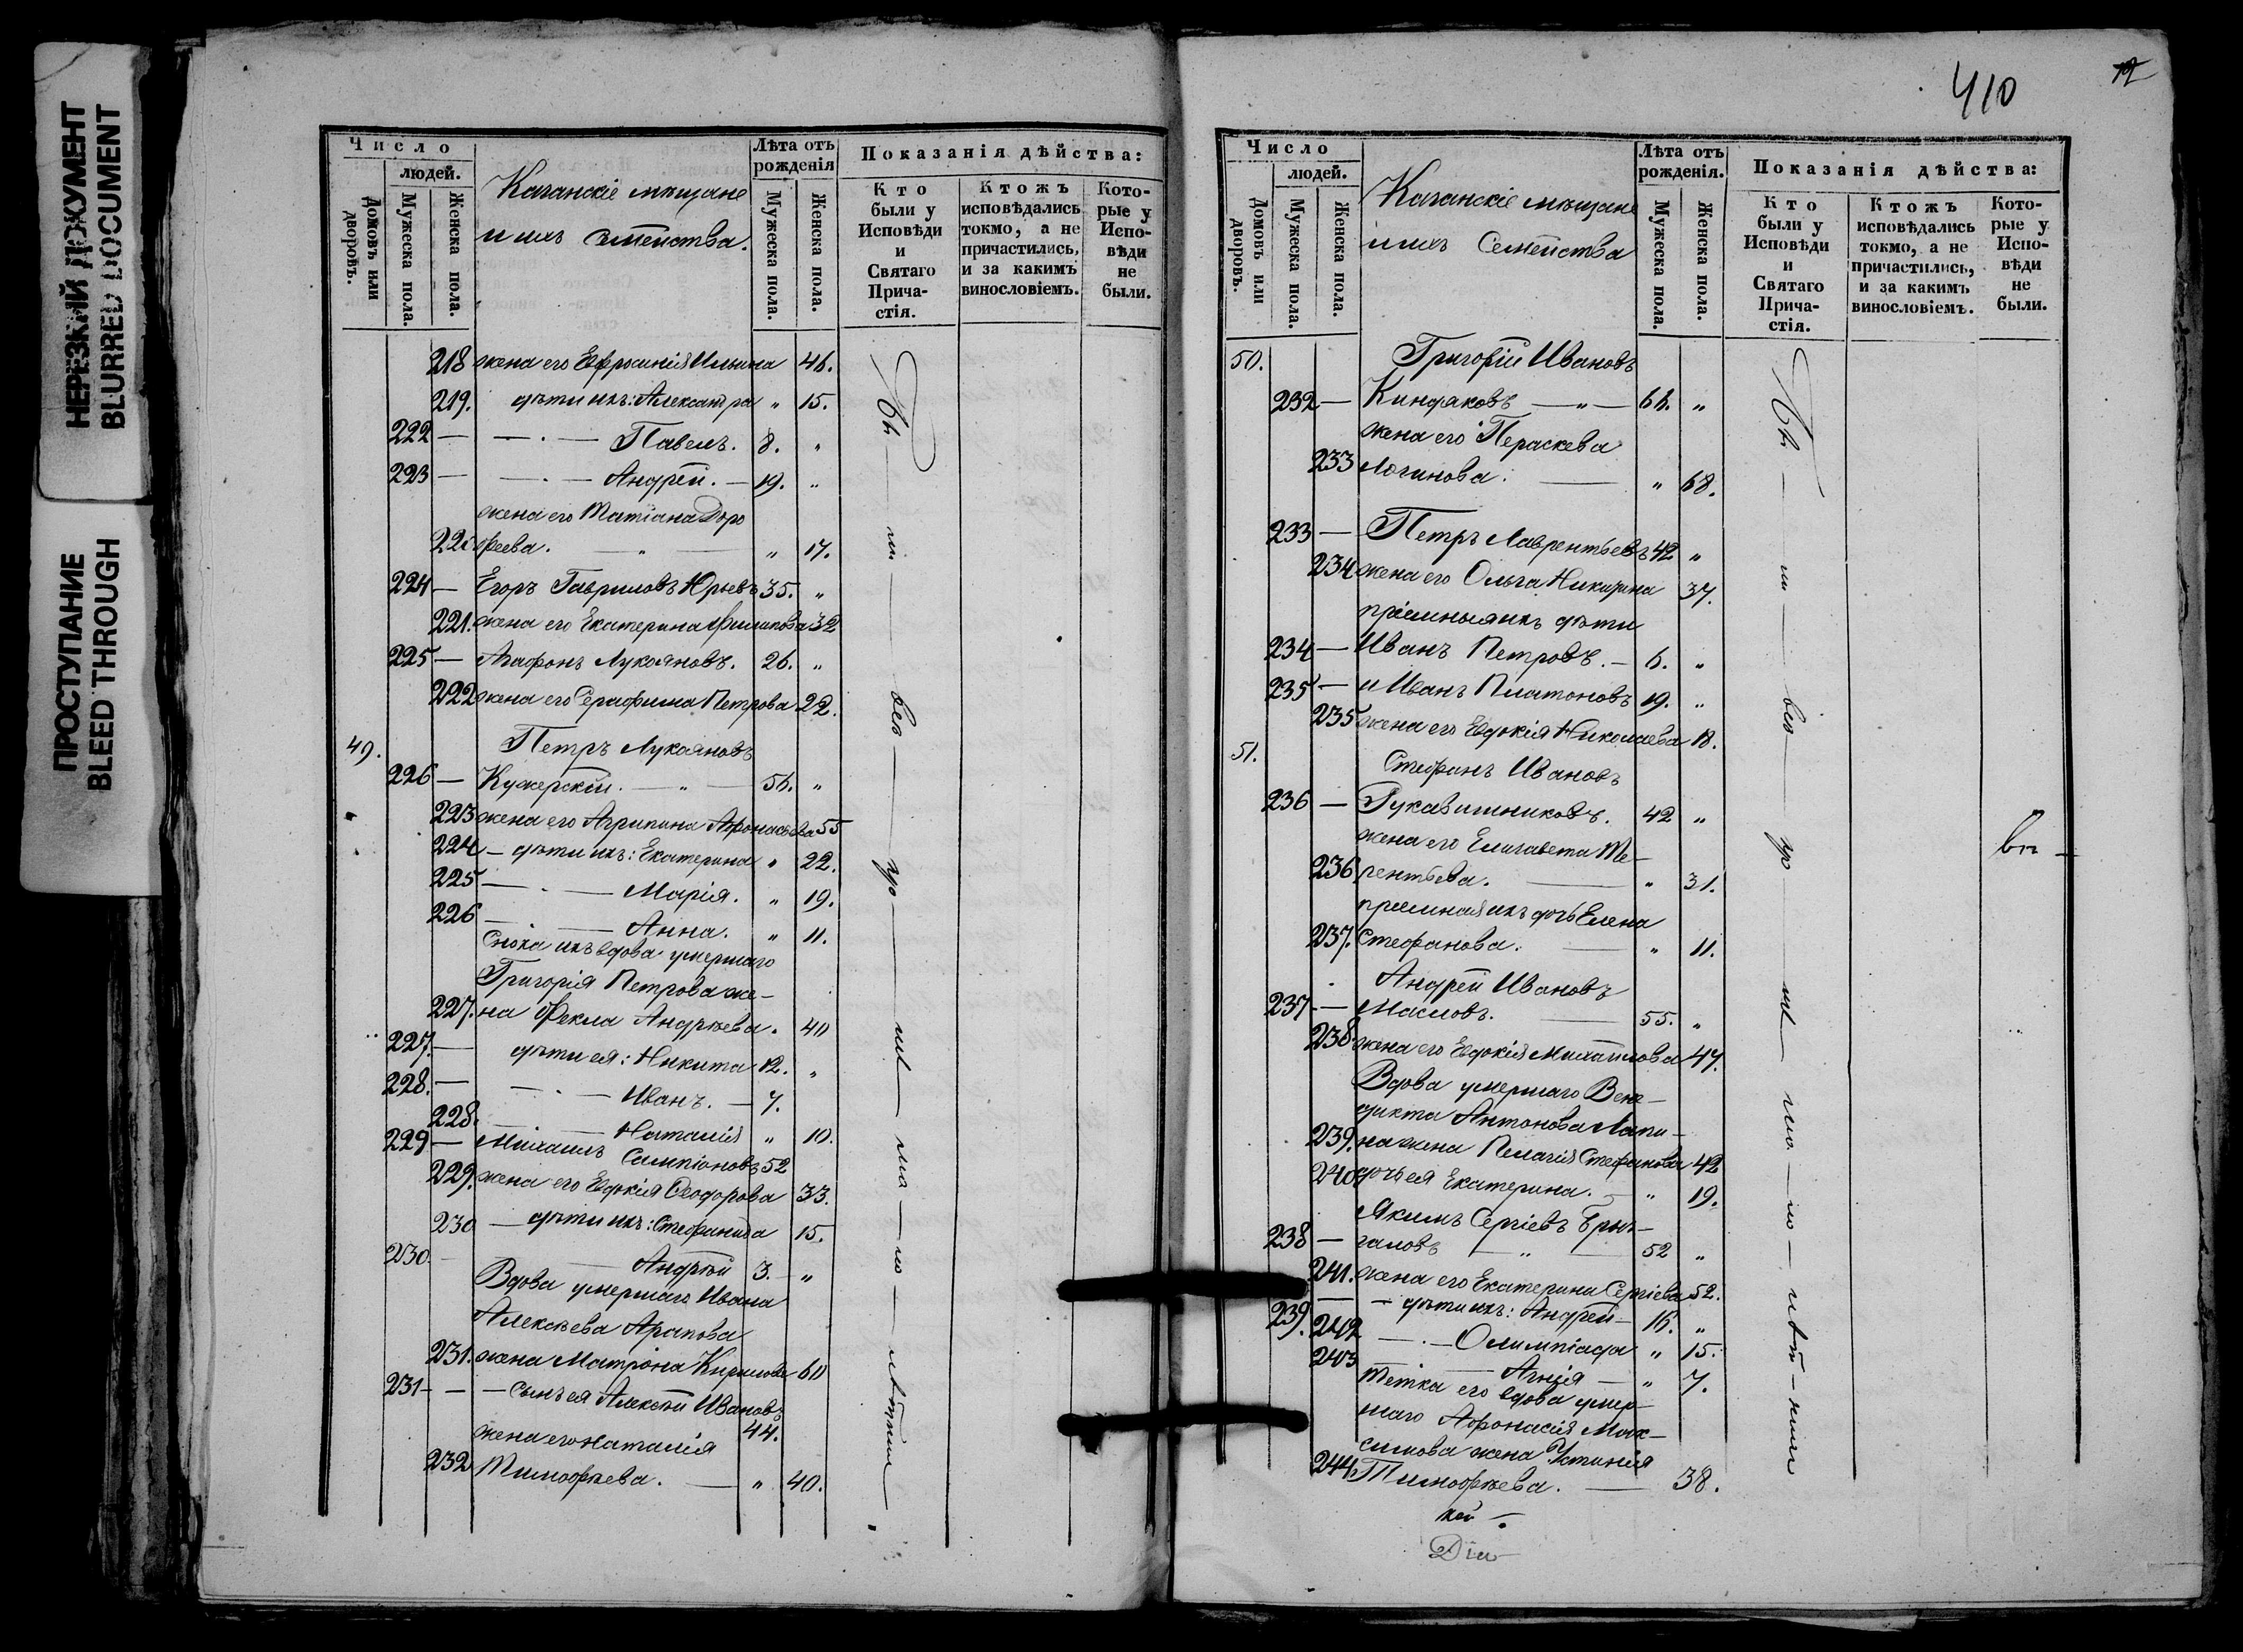 НЕРЕЗКИЙ ДОКУМЕНТ
BLURRED DOCUMENT
ПРОСТУПАНИЕ
BLEED THROUGH
Число
людей.
Домовъ или дворовъ.
Мужеска пола.
Женска пола.
Казанскіе мѣщане
и ихъ семейства.
Лѣта отъ рожденія
Мужеска пола.
Женска пола.
Показанія дѣйства:
Кто были у Исповѣди и Святаго Прича-стія.
Ктожъ исповѣдались токмо, а не причастились, и за какимъ винословіемъ.
Кото-рые у Испо-вѣди не были.
218 жена его Евфросинія Ильина 46.
219. дѣти ихъ: Александра " 15.
222 — — Павелъ. 8. "
223 — — Андрей. — 19. "
жена его Татіана Доро
220 феева. — " — " 17.
224 — Егоръ Гавриловъ Юрьевъ 35. "
221. жена его Екатерина Филипова 32
225 — Агафонъ Лукояновъ. 26. "
222 жена его Серафима Петрова 22.
49. Петръ Лукояновъ
226 — Кужерскій. — " — 56. "
223 жена его Агрипина Афонасьева 55
224 — дѣти ихъ: Екатерина " 22.
225 — — Марія. " 19.
226 — — Анна. " 11.
Сноха ихъ вдова умершаго
Григорія Петрова же-
227. на Фекла Андрѣева. 40
227. — дѣти ея: Никита 12. "
228. — — Иванъ. — 7.
228. — Наталія " 10.
229 — Михаилъ Сампсоновъ 52
229. жена его Евдокія Ѳеодорова 33.
230 — дѣти ихъ: Стефанида 15.
230 — — Андрѣй 3. — "
Вдова умершаго Ивана
Алексѣева Арапова
231. жена Матрона Кирилова 60
231 — — сынъ ея Алексѣй Ивановъ
44.
жена его Наталія
232 Тимофѣева. — " 40.
410
12
Число
людей.
Домовъ или дворовъ.
Мужеска пола.
Женска пола.
Казанскіе мѣщане
и ихъ Семейства
Лѣта отъ рожденія.
Мужеска пола.
Женска пола.
Показанія дѣйства:
Кто были у Исповѣди и Святаго Прича-стія.
Ктожъ исповѣдались токмо, а не причастились, и за какимъ винословіемъ.
Кото-рые у Испо-вѣди не были.
50. Григорій Ивановъ
232 — Киндяковъ — " — 66. "
жена его Пераскева
233 Логинова. — " 68.
233 — Петръ Лаврентьевъ 42 "
234 жена его Ольга Никитина 37.
пріемныя ихъ дѣти
234 — Иванъ Петровъ. — 6. "
235 — и Иванъ Платоновъ 19. "
235 жена его Евдокія Николаева 18.
51. Стефанъ Ивановъ
236 — Рукавишниковъ. 42 "
жена его Елизавета Те-
236 рентьева. — " 31.
пріемная ихъ дочь Елена
237. Стефанова. — " 11.
Андрей Ивановъ
237 — Масловъ. — 55. "
238 жена его Евдокія Михаилова 47.
Вдова умершаго Вене-
дикта Антонова Лапи-
239. на жена Пелагія Стефанова 42
240 дочь ея Екатерина. — " 19.
Якимъ Сергіевъ Брын-
238 — галовъ — " — 52 "
241. жена его Екатерина Сергіева 52.
239. — дѣти ихъ: Андрей — 16. "
242 — Олимпіада " 15.
243 — Агнія — " 7.
Тетка его вдова умер-
шаго Афонасія Мак-
симова жена Устинія
244. Тимофѣева. — 38.